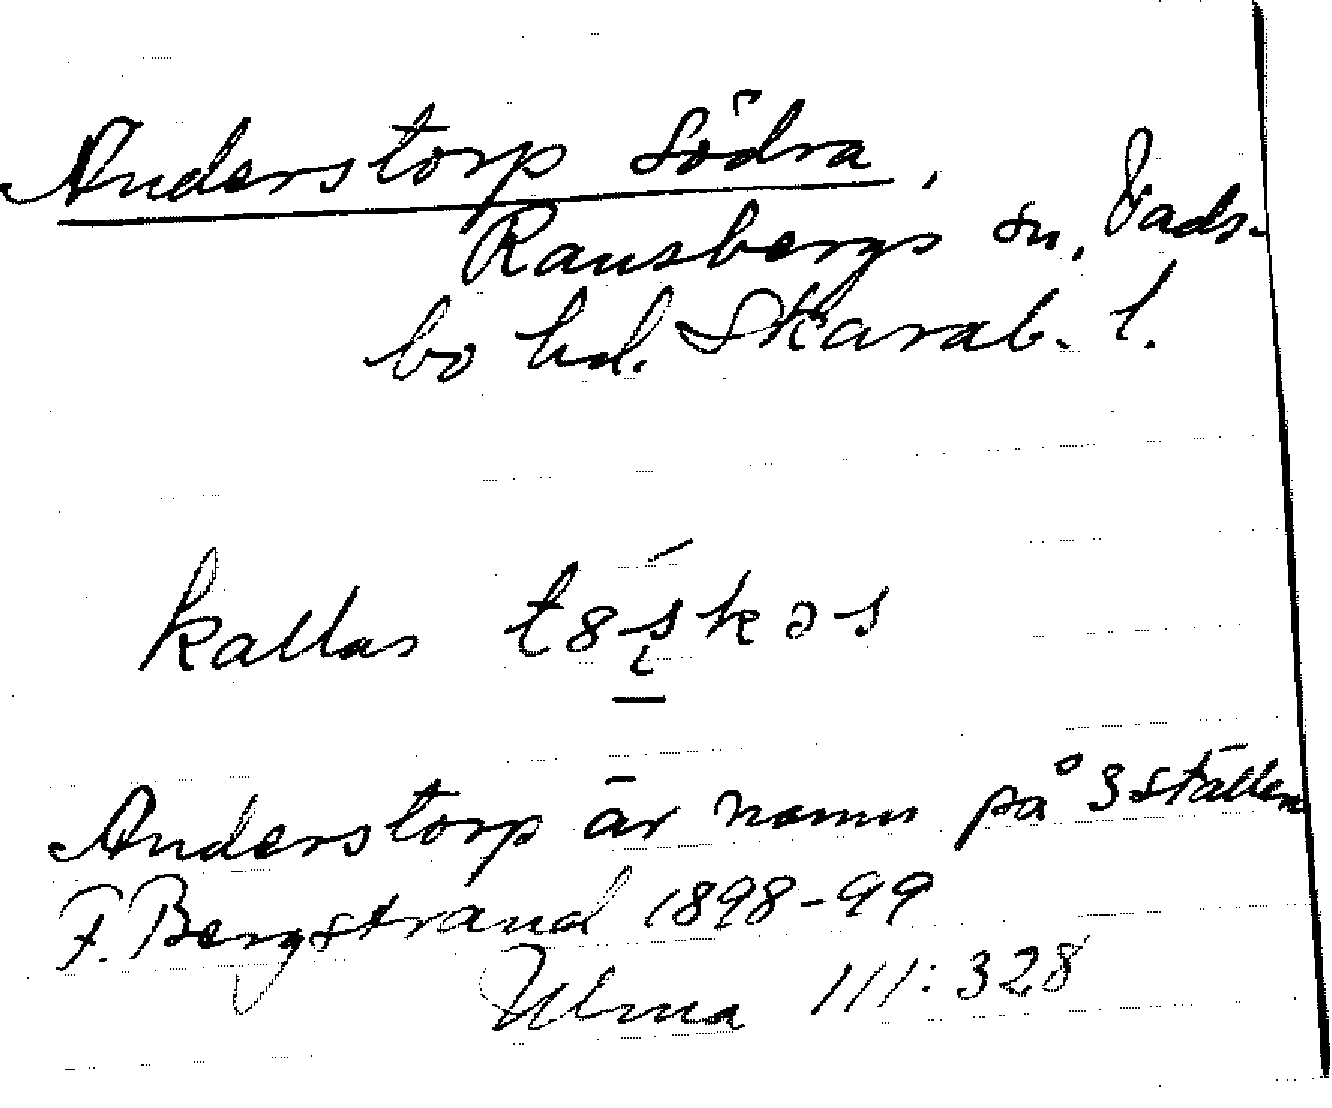 Anderstorp Södra,
Ransbergs sn, Vads-
bo hd. Skarab. l.
kallas
Anderstorp är namn på 3 ställen
F. Bergstrand 1898-99
Ulma 111:328